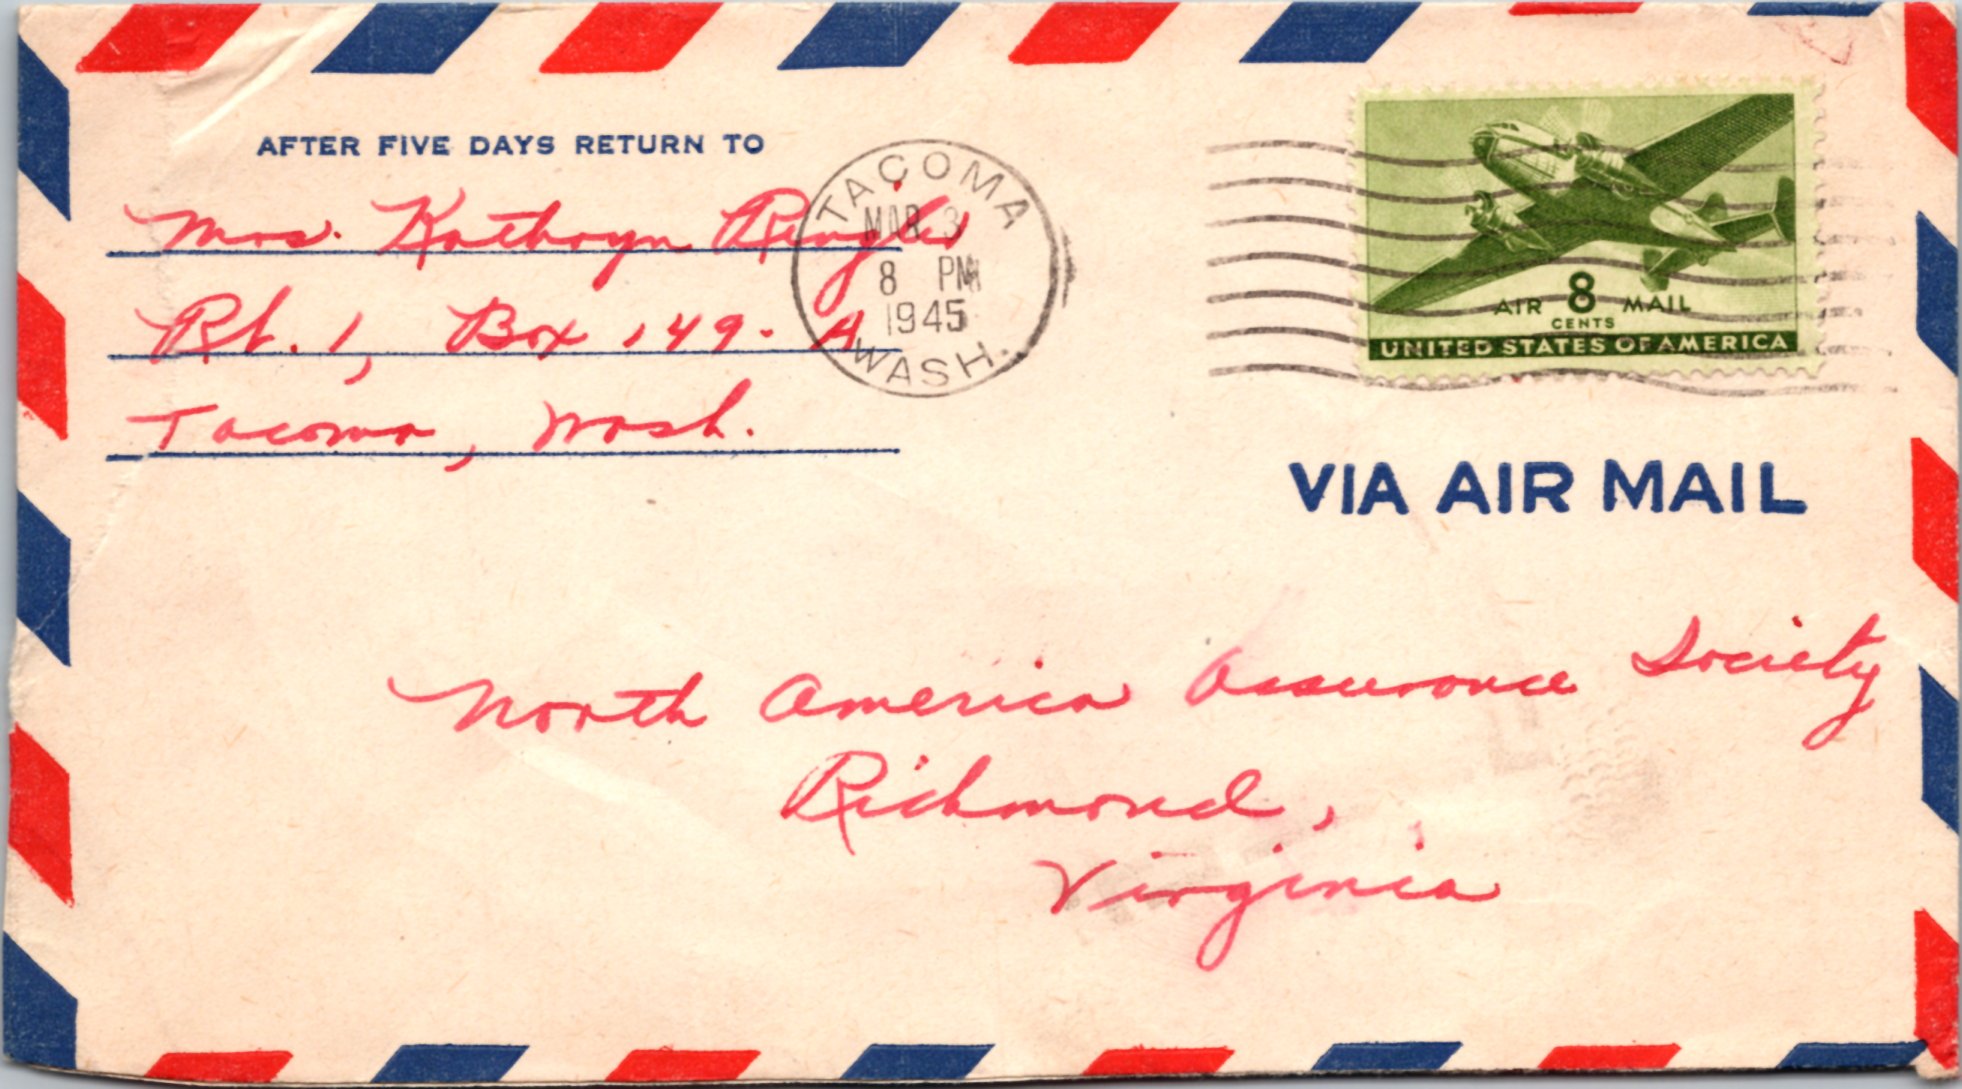 AFTER FIVE DAYS RETURN TO
Mrs. Kathryn
Rt. 1, Box 149-A
Tacoma, Wash.
TACOMA
MAR 3
8 PM
1945
WASH.
AIR 8 MAIL
CENTS
UNITED STATES OF AMERICA
VIA AIR MAIL
North America Assurance Society
Richmond,
Virginia